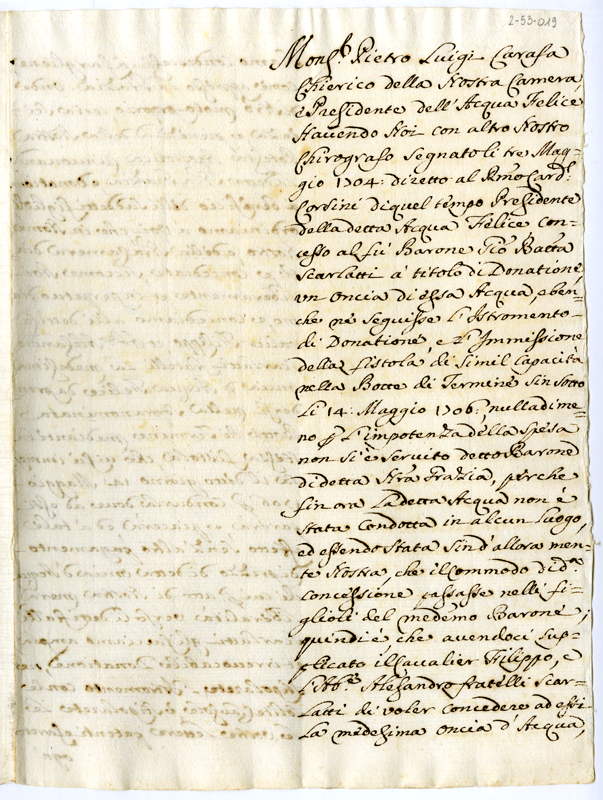 2-53-019
Mons.r Pietro Luigi Carafa
Chierico della Nostra Camera,
e Presidente dell'Acqua Felice
Havendo Noi con altro Nostro
Chirografo segnato li tre Mag=
gio 1704: diretto al Rmo Card:
Corsini di quel tempo Presidente
della detta Acqua Felice con=
cesso al fù Barone Gio Batta
Scarlatti a' titolo di Donatione
un oncia di essa Acqua, e ben=
che ne seguisse l'Istromento
di Donatione, e l'Immissione
della fistola di simil capacità
nella Botte di Termine sin sotto
li 14: Maggio 1706: nulladime=
no p l'impotenza della spesa
non si è servito detto Barone
di detta Nra Grazia, perche
fin ora la detta Acqua non è
stata condotta in alcun luogo,
ed essendo stata sin d'allora men=
te Nostra, che il commodo di d.a
concessione passasse nelli fi=
glioli del medemo Barone;
quindi è che avendoci sup=
plicato il Cavalier Filippo, e
l'Ab.e Alessandro fratelli Scar=
latti di voler concedere ad essi
la medesima oncia d'Acqua,